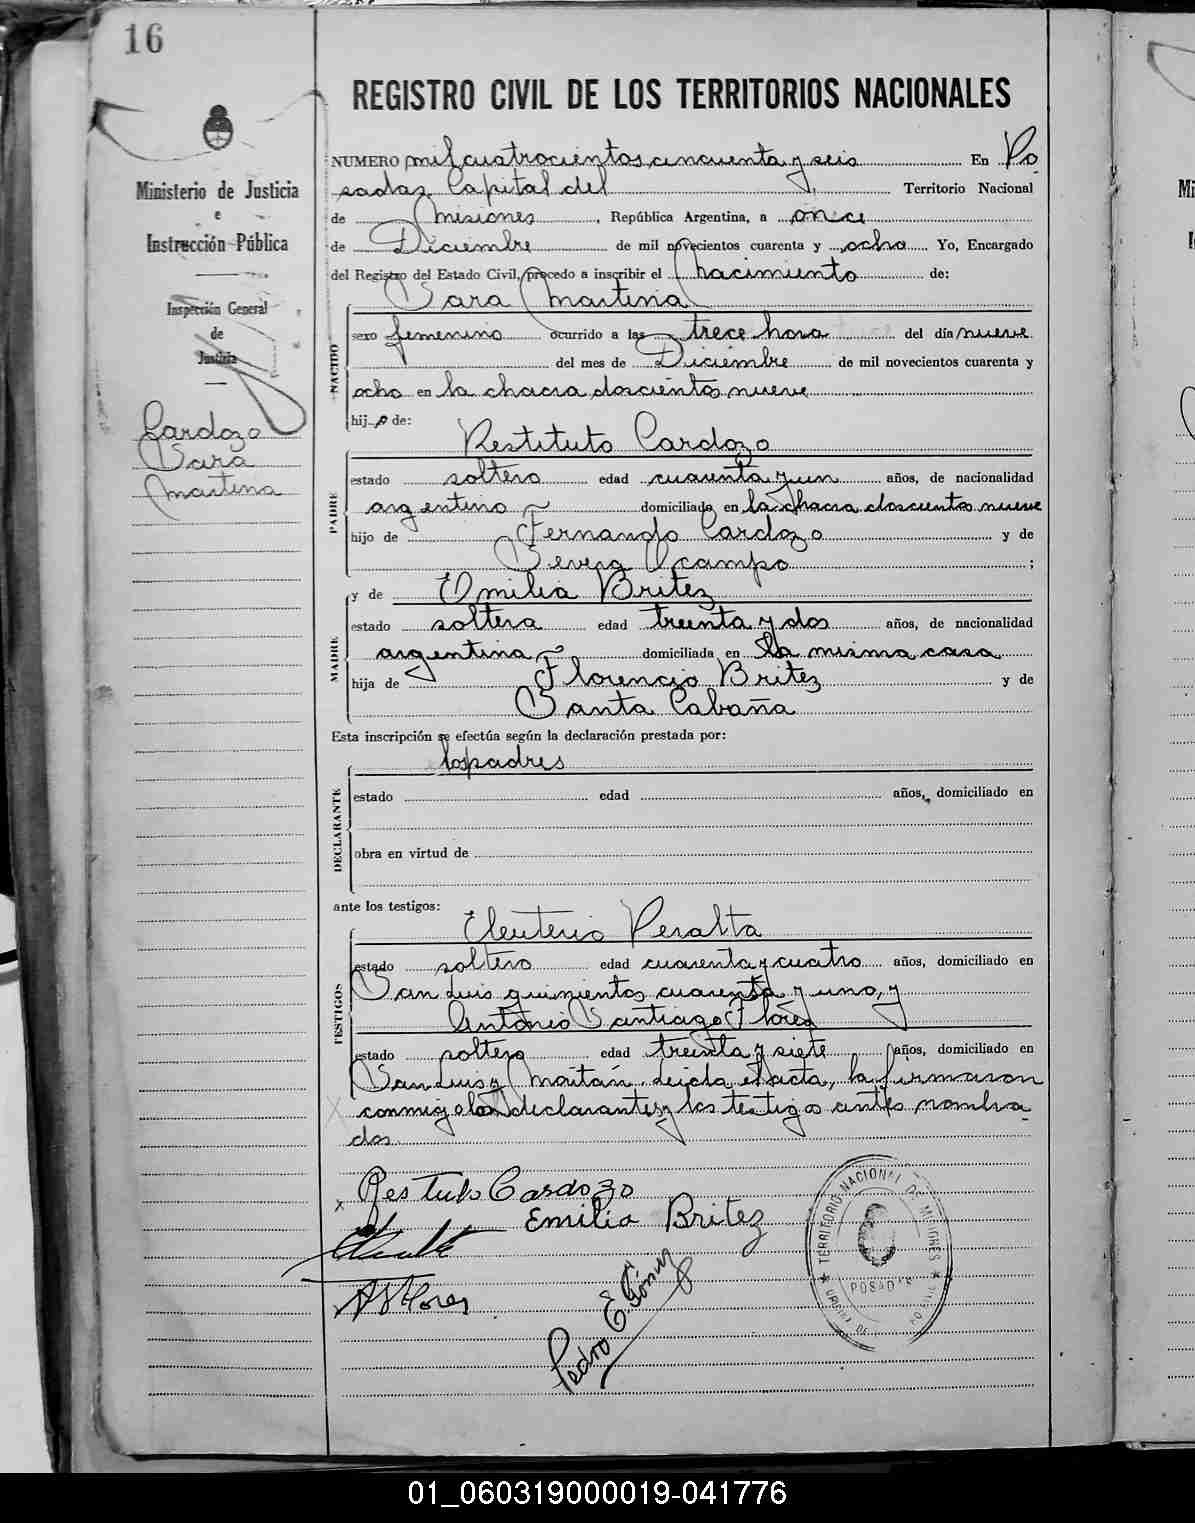 16
REGISTRO CIVIL DE LOS TERRITORIOS NACIONALES
Ministerio de Justicia
e
Instrucción Pública
Inspección General
de
Justicia
Cardozo
Sara
Martina
NUMERO mil cuatrocientos cincuenta y seis En Po
sadas Capital del Territorio Nacional
de Misiones, República Argentina, a once
de Diciembre de mil novecientos cuarenta y ocho Yo, Encargado
del Registro del Estado Civil, procedo a inscribir el Nacimiento de:
Sara Martina
NACIDO
sexo femenino ocurrido a las trece hora del día nueve
del mes de Diciembre de mil novecientos cuarenta y
ocho en la chacra doscientos nueve
hij a de:
Restituto Cardozo
PADRE
estado soltero edad cuarenta y un años, de nacionalidad
argentino domiciliado en la chacra doscientos nueve
hijo de Fernando Cardozo y de
Ocampo ;
y de Emilia Britez
MADRE
estado soltera edad treinta y dos años, de nacionalidad
argentina domiciliada en la misma casa
hija de Florencio Britez y de
Santa Cabaña
Esta inscripción se efectúa según la declaración prestada por:
los padres
DECLARANTE
estado edad años, domiciliado en
obra en virtud de
ante los testigos:
Eleuterio Peralta
TESTIGOS
estado soltero edad cuarenta y cuatro años, domiciliado en
San Luis quinientos cuarenta y uno, y
Antonio Santiago Flores
estado soltero edad treinta y siete años, domiciliado en
San Luis y Moitán. Leída el acta, la firmaron
conmigo los declarantes y los testigos antes nombra
dos
Restituto Cardozo
Emilia Britez
A S Flores
Pedro E. Gómez
TERRITORIO NACIONAL DE MISIONES
POSADAS
01_060319000019-041776